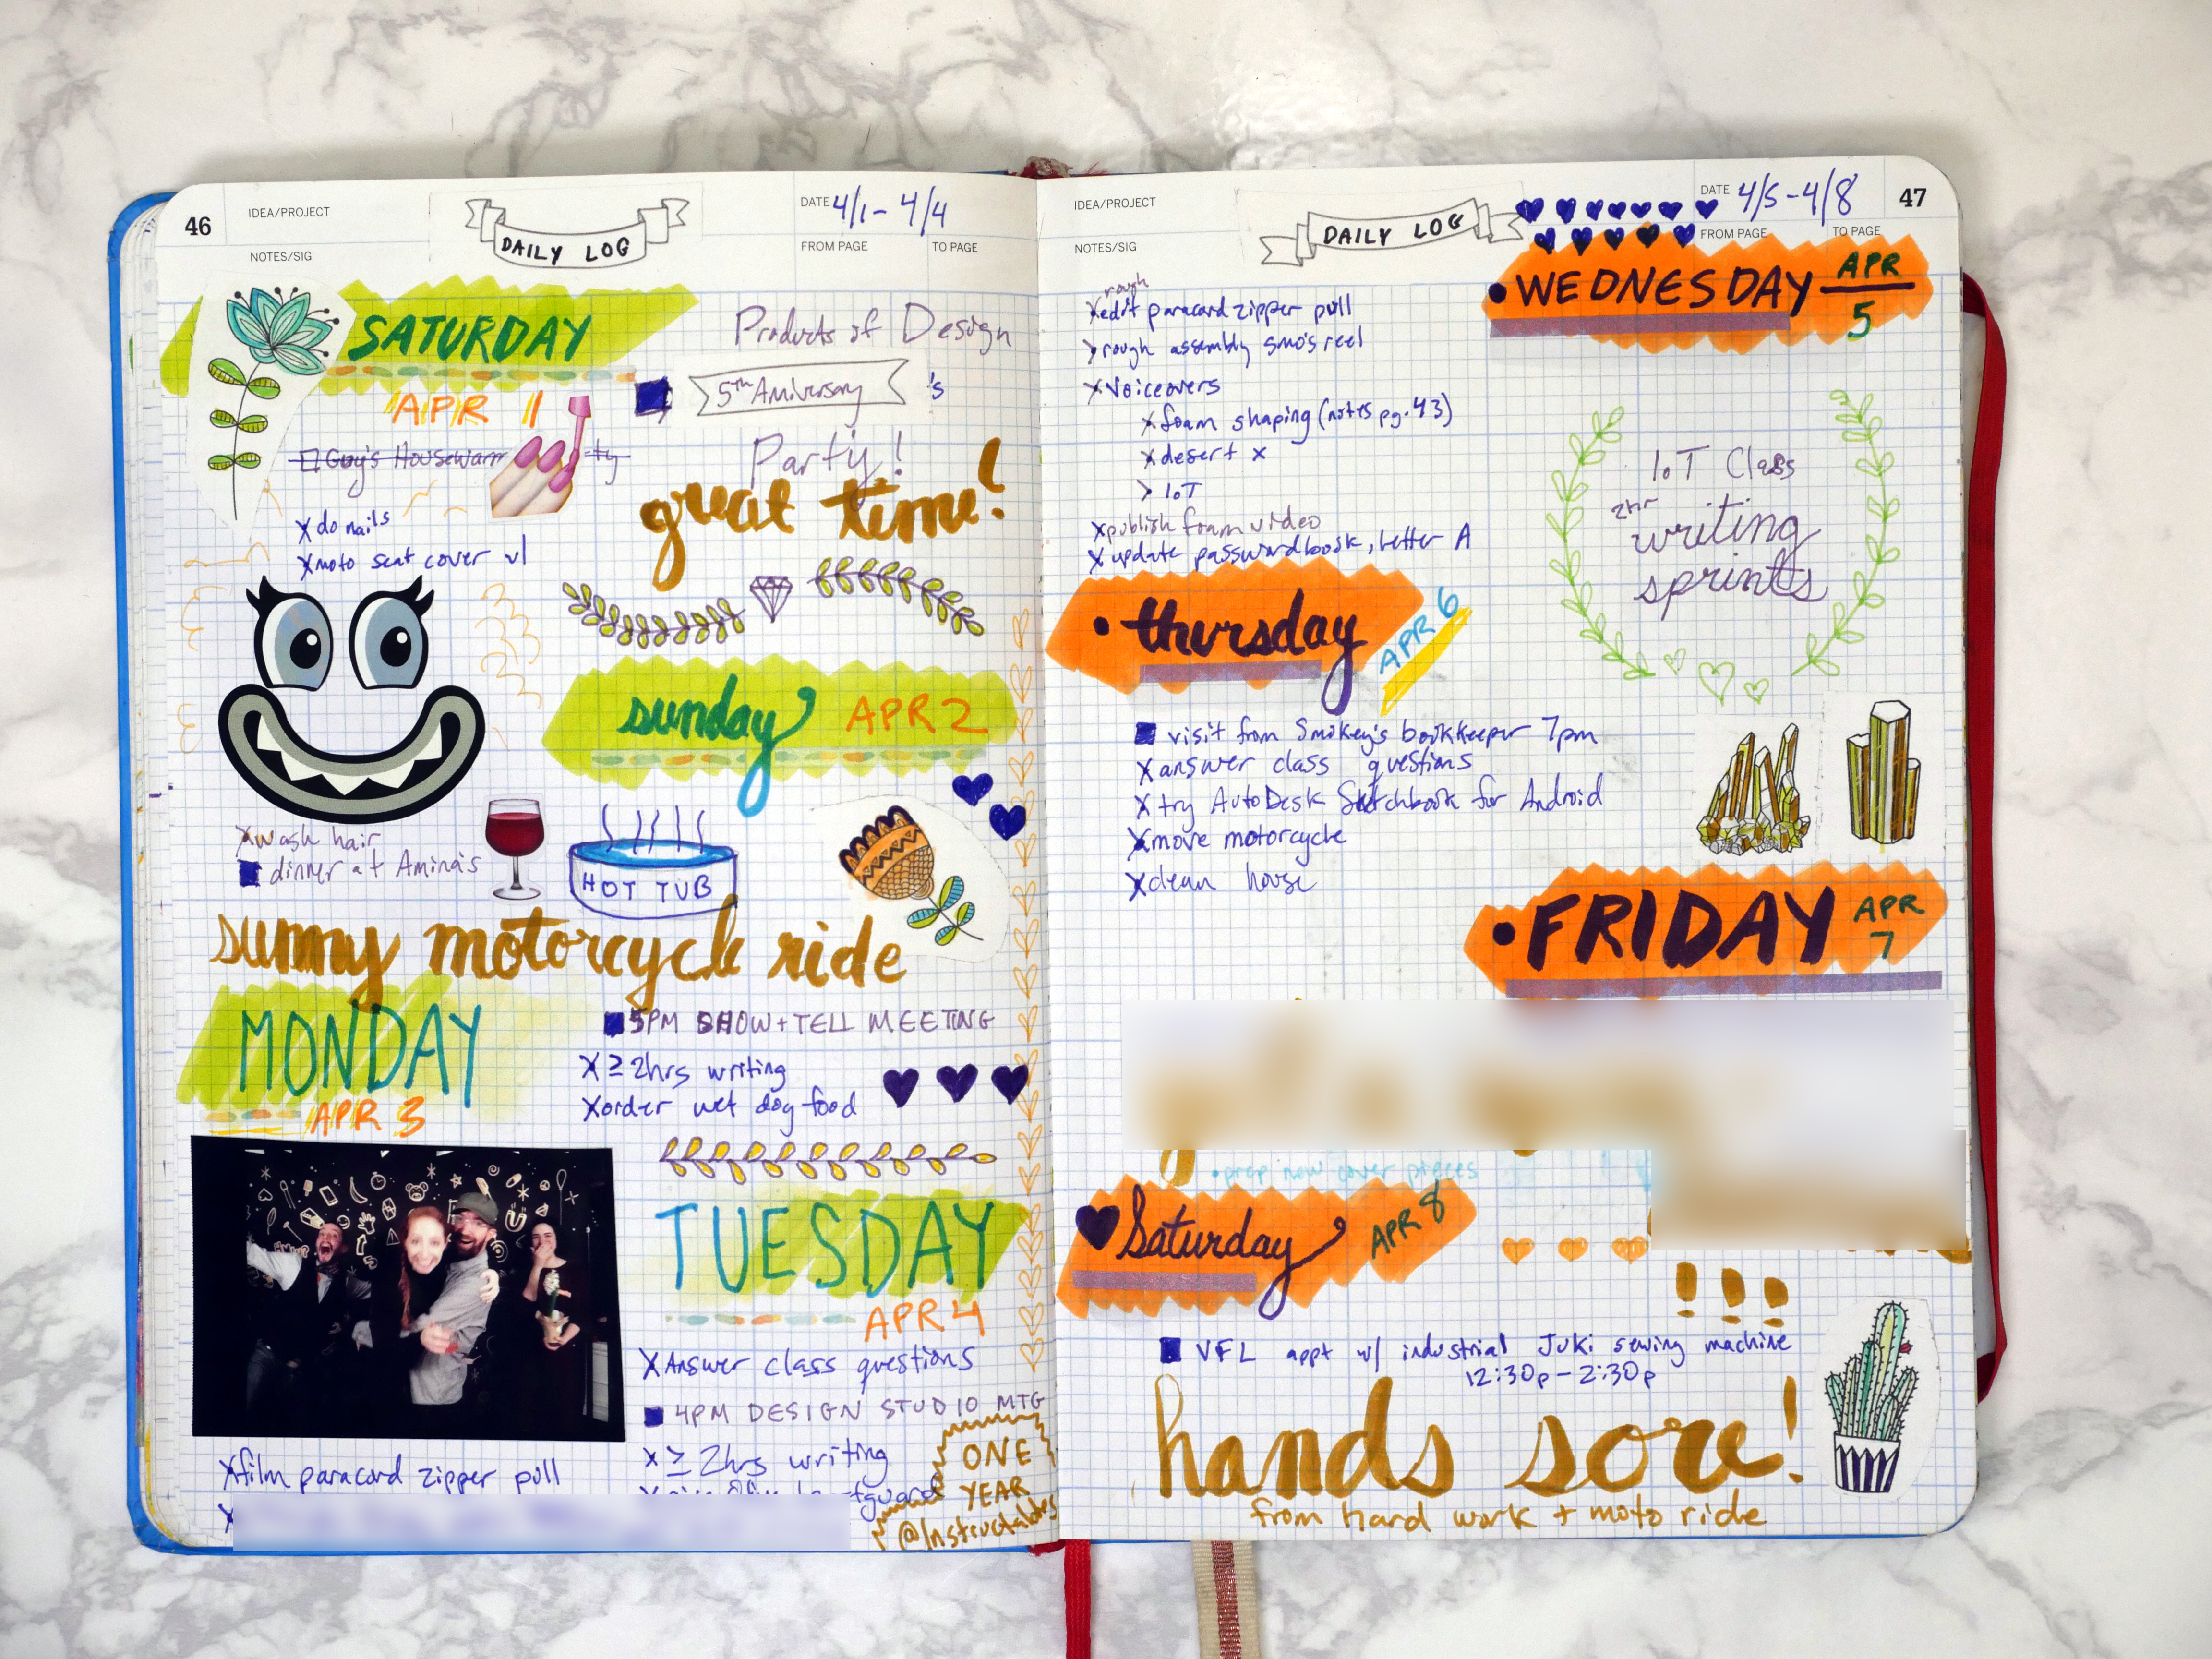 46
IDEA/PROJECT
NOTES/SIG
DAILY LOG
DATE 4/1 - 4/4
FROM PAGE
TO PAGE
SATURDAY
APR 1
Guy's Housewarm
ty
x do nails
x moto seat cover v1
Products of Design
5th Aniversary 's
Party!
great time!
sunday APR 2
x wash hair
dinner at Amina's
HOT TUB
sunny motorcycle ride
MONDAY
APR 3
5PM SHOW + TELL MEETING
x ≥ 2hrs writing
x order wet dog food
x film paracord zipper pull
x
TUESDAY
APR 4
x Answer class questions
4PM DESIGN STUDIO MTG
x ≥ 2hrs writing
ONE
YEAR
@Instructables
IDEA/PROJECT
NOTES/SIG
DAILY LOG
DATE 4/5 - 4/8
FROM PAGE
TO PAGE
47
• WEDNESDAY APR
5
rough
x edit paracord zipper pull
> rough assembly smo's reel
x Voiceovers
x foam shaping (notes pg. 43)
x desert x
> IoT
x publish foam video
x update passwordbook, better A
IoT Class
2hr
writing
sprints
• thursday APR 6
visit from Smokey's bookkeeper 7pm
x answer class questions
x try AutoDesk Sketchbook for Android
x move motorcycle
x clean house
• FRIDAY APR
7
• prep new cover pieces
Saturday APR 8
!!!
VFL appt w/ industrial Juki sewing machine
12:30p - 2:30p
hands sore!
from hard work + moto ride